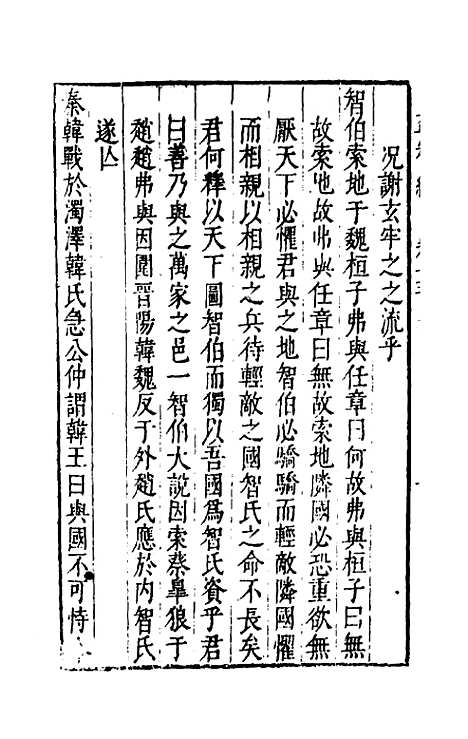 况謝玄牢之之流乎
智伯索地于魏桓子弗與任章曰何故弗與桓子曰無
故索地故弗與任章曰無故索地隣國必恐重欲無
厭天下必懼君與之地智伯必驕驕而輕敵隣國懼
而相親以相親之兵待輕敵之國智氏之命不長矣
君何釋以天下圖智伯而獨以吾國為智氏資乎君
曰善乃與之萬家之邑一智伯大說因索蔡臯狼于
趙趙弗與因圍晉陽韓魏反于外趙氏應於內智氏
遂亾
秦韓戰於濁澤韓氏急公仲謂韓王曰與國不可恃